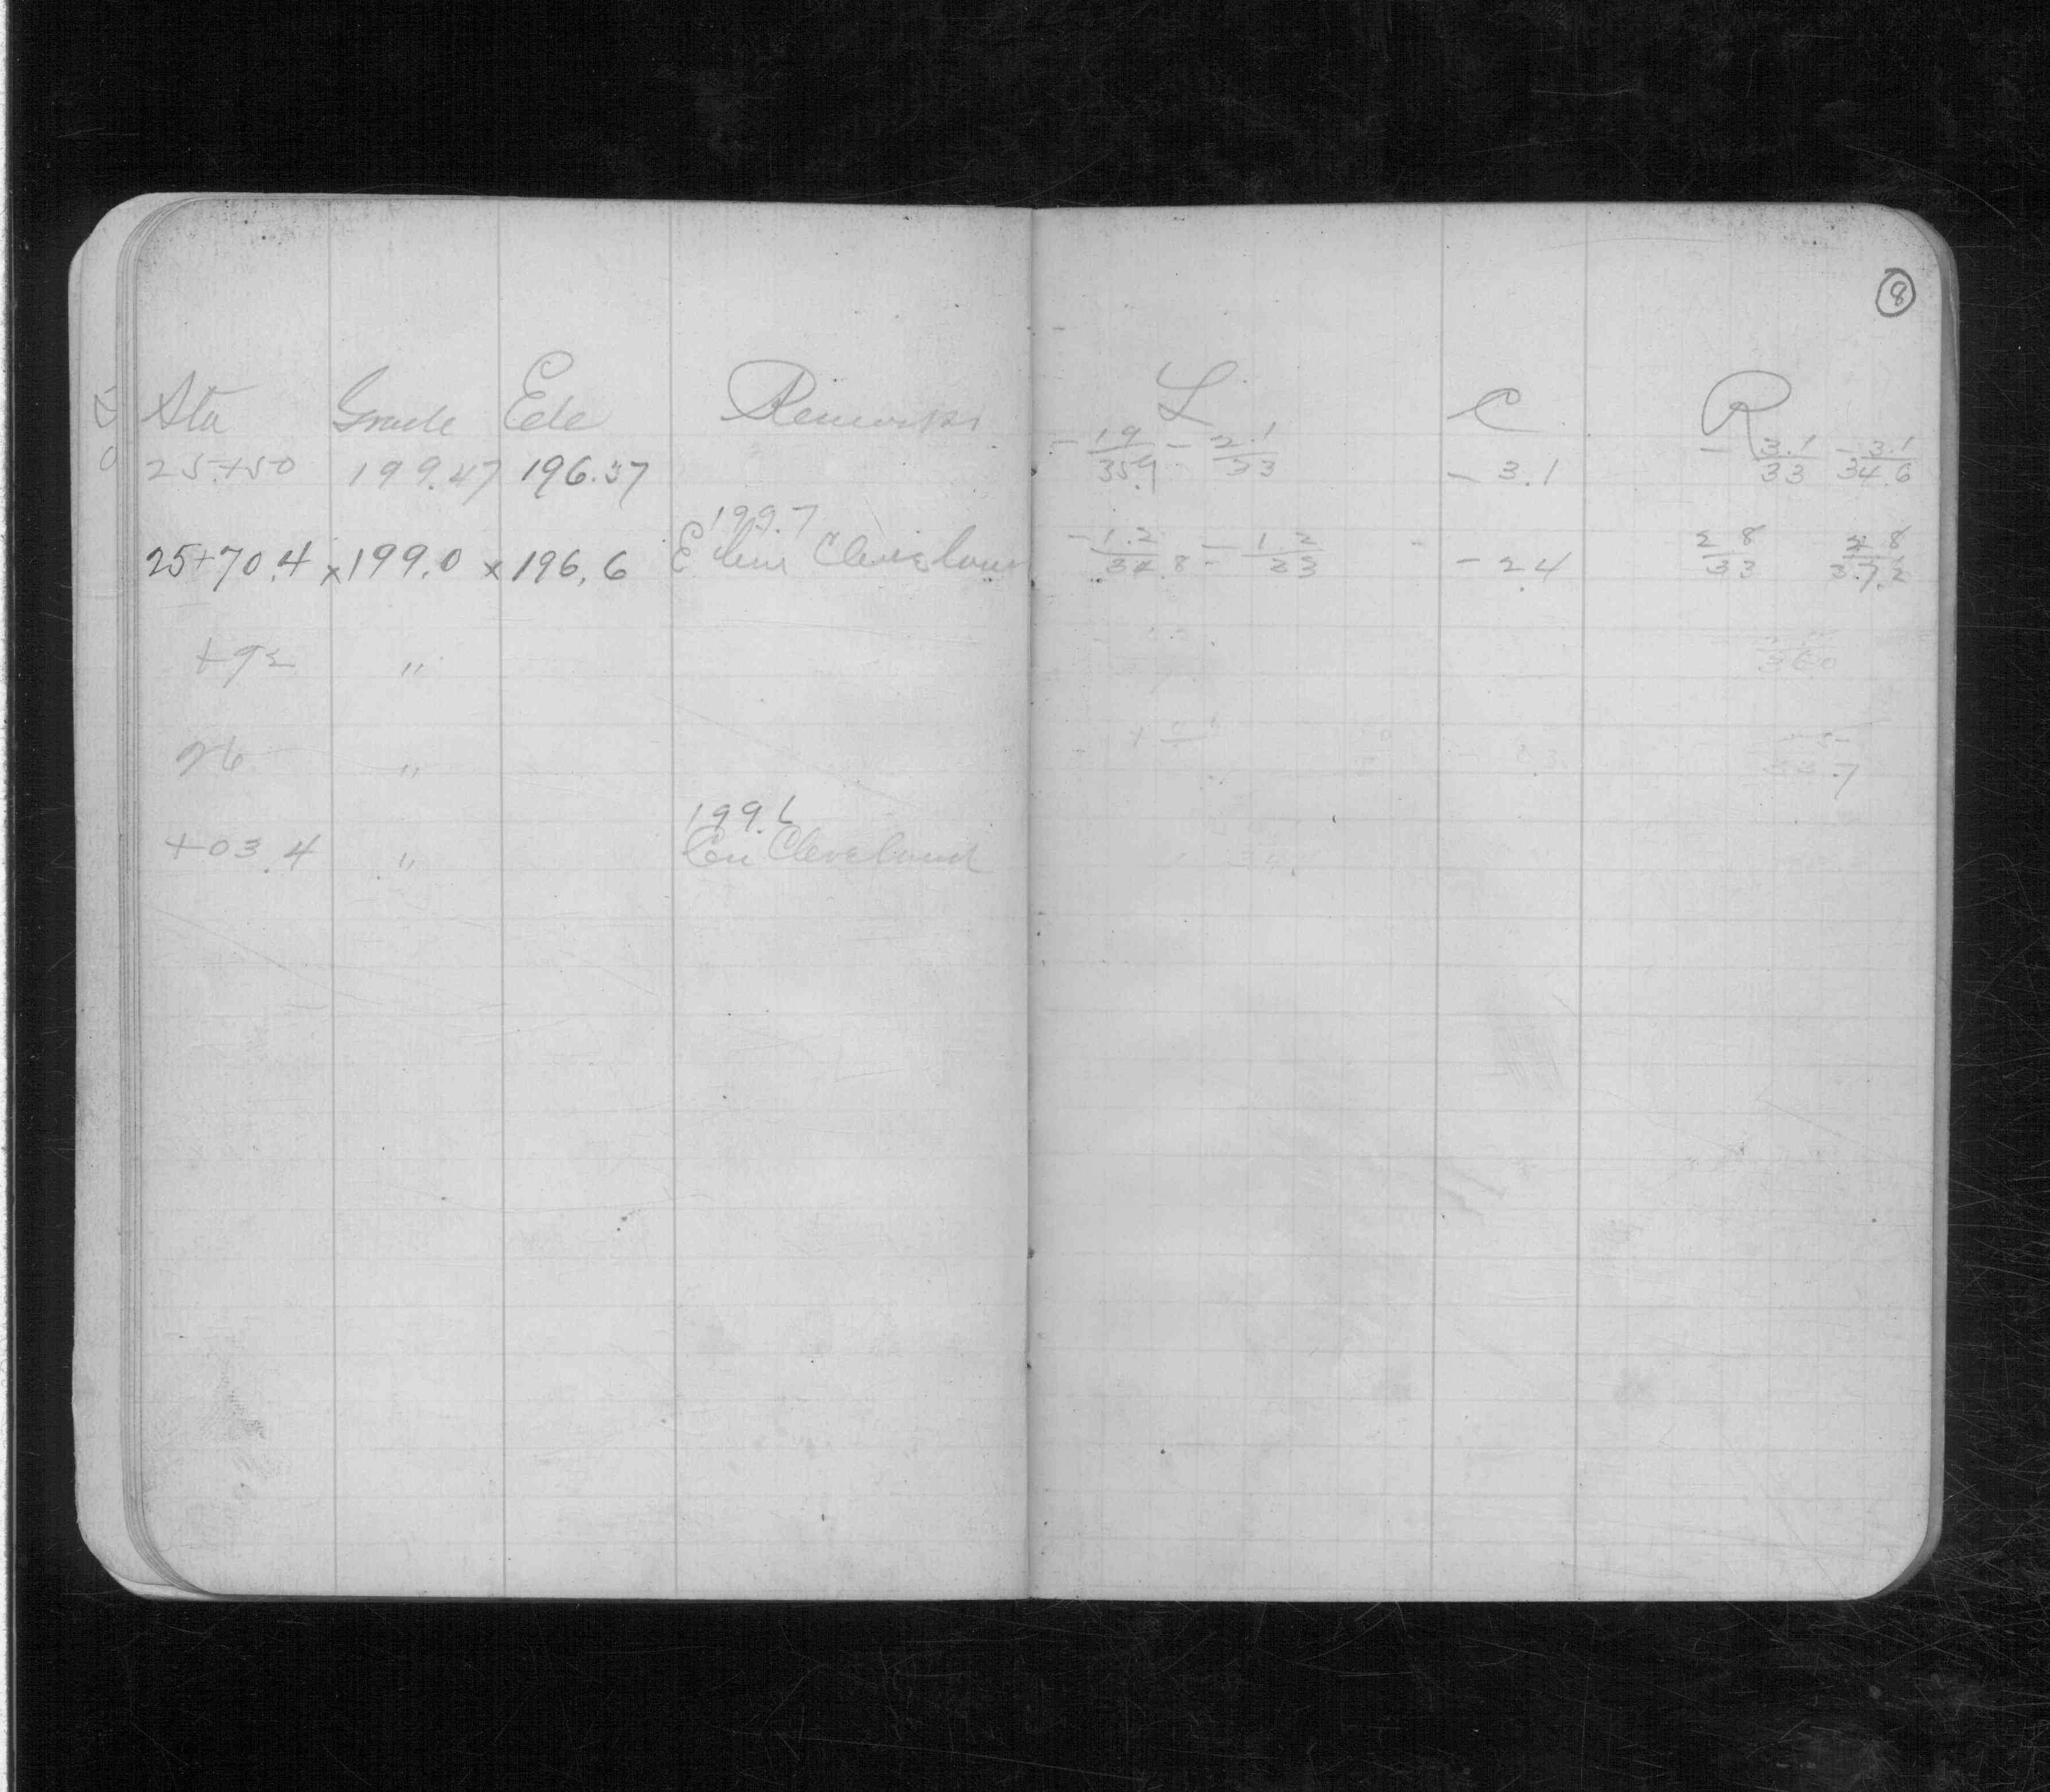 8
Sta Grade Ele Remarks L C R
25+50 199.47 196.37 -1.9/35.9 -2.1/33 -3.1 -3.1/33 -3.1/34.6
199.7
25+70.4 x199.0 x196.6 E line Cleveland -1.2/34.8 -1.2/33 -2.4 2.8/33 2.8/37.2
+92 "
26 "
199.6
+03.4 " Cen Cleveland